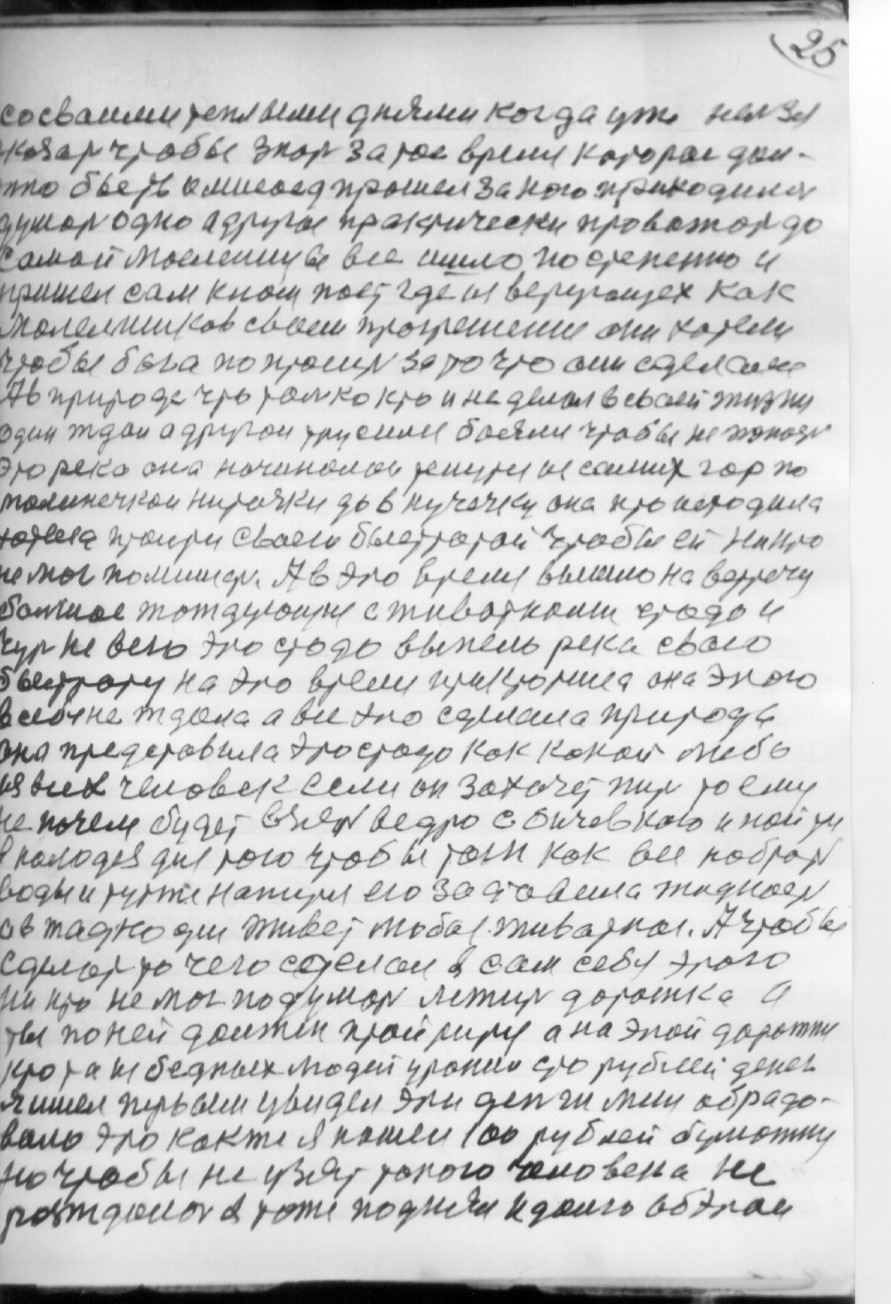 25
со сваими теплыми днями когда уже нельзя
чтобы знат за тое время которае дол-
жно быть прошел за ного приходилос
думат одно а другое практически проважат до
самой масленицы все ишло постепенно и
пришел сам пост где из верующех как
своем прогрешение они хотели
чтобы бога попросит за то что они сделали
А в природе что толко кто и не делал в своей жизни
один ждал а другои трусили боялис чтобы не
Это река она начиналас из самих гор по
малинечкои ниточки до в кучечку она происходила
хотела проити своеи быстратай чтобы еи никто
не мог помишат. А в это время вышло на встречу
болшое с живатными стадо и
чут не всю это стадо выпель река свою
быстроту на это время прикротила она этого
в себе не ждала а все это сделала природа
она представила это стадо как какои либо
из всех человек если он захочет пит то ему
не почем будет взят ведро с бичевкою и поити
в колодез для того чтобы как все набрат
воды и тутже напится его заставила жидкост
а в жидкости живет любое живатное. А чтобы
сделат то чего сделал я сам себя этого
ни кто не мог подумат лежит дорожка а
ты по ней должен проитити а на этой дорожки
кто та из бедных людей уронил сто рублей денег
Я ишел первыи увидел эти денги мин обрадо-
вало это как же я нашел 100 рублей бумажку
но чтобы не узят такого человека не
рождалос я тоже поднял и долго об этом